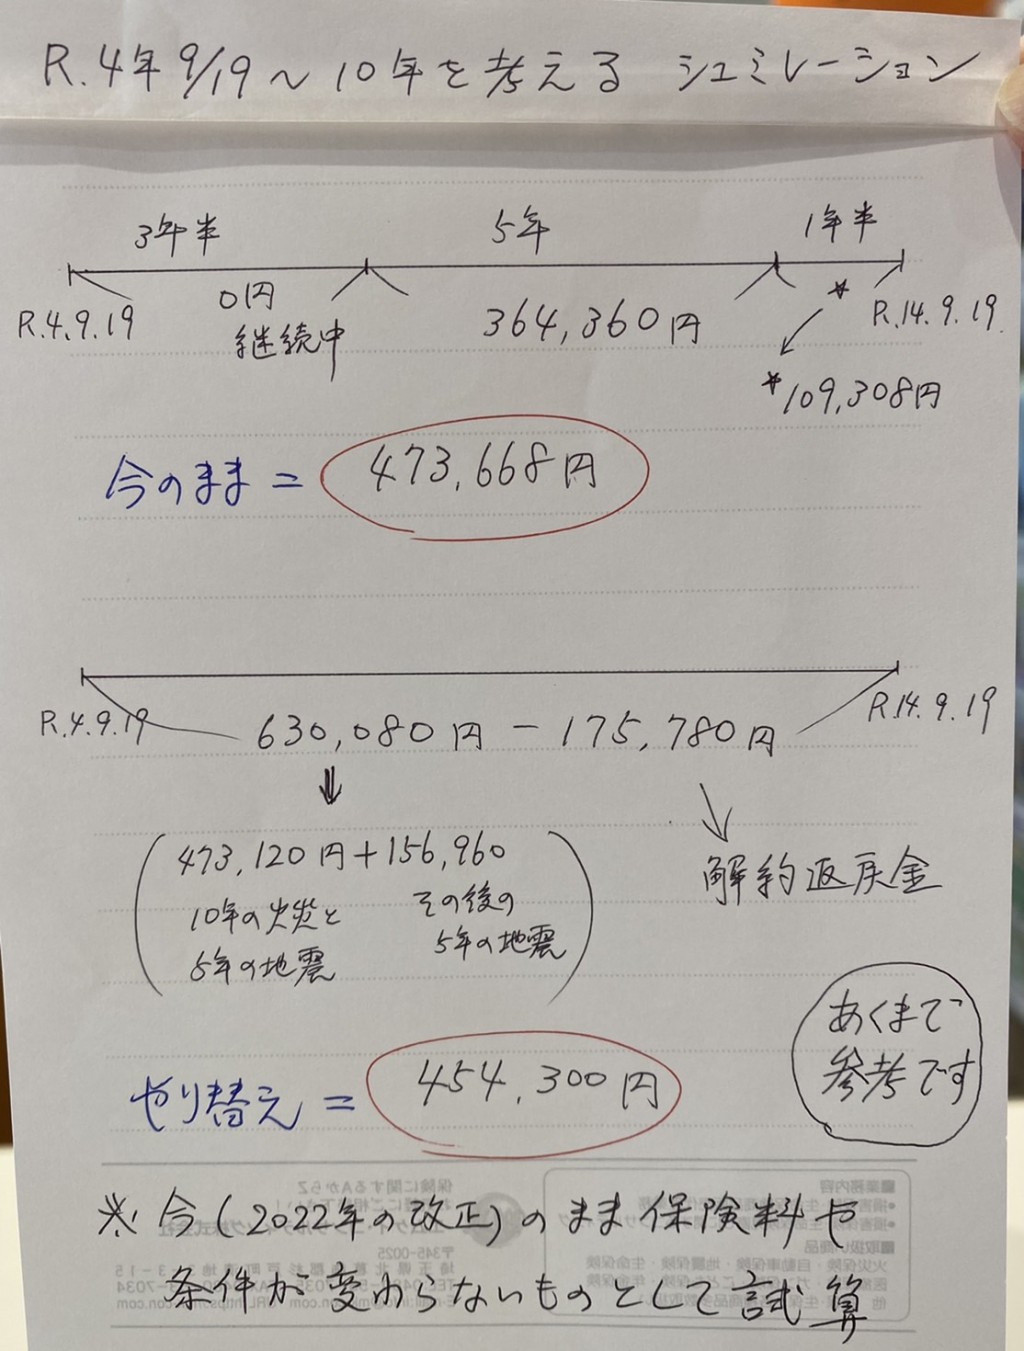 R.4年9/19～10年を考える シュミレーション
3年半 5年 1年半
R.4.9.19 0円 継続中 364,360円 * R.14.9.19
*109,308円
今のまま = 473,668円
R.4.9.19 630,080円 − 175,780円 R.14.9.19
473,120円+156,960
10年の火災と その後の
5年の地震 5年の地震
解約返戻金
あくまで
参考です
やり替え = 454,300円
※ 今(2022年の改正)のまま保険料や
条件が変わらないものとして試算
■業務内容
■取扱い商品
保険に関するAからZ
〒345-0025
火災保険・自動車保険・地震保険・生命保険